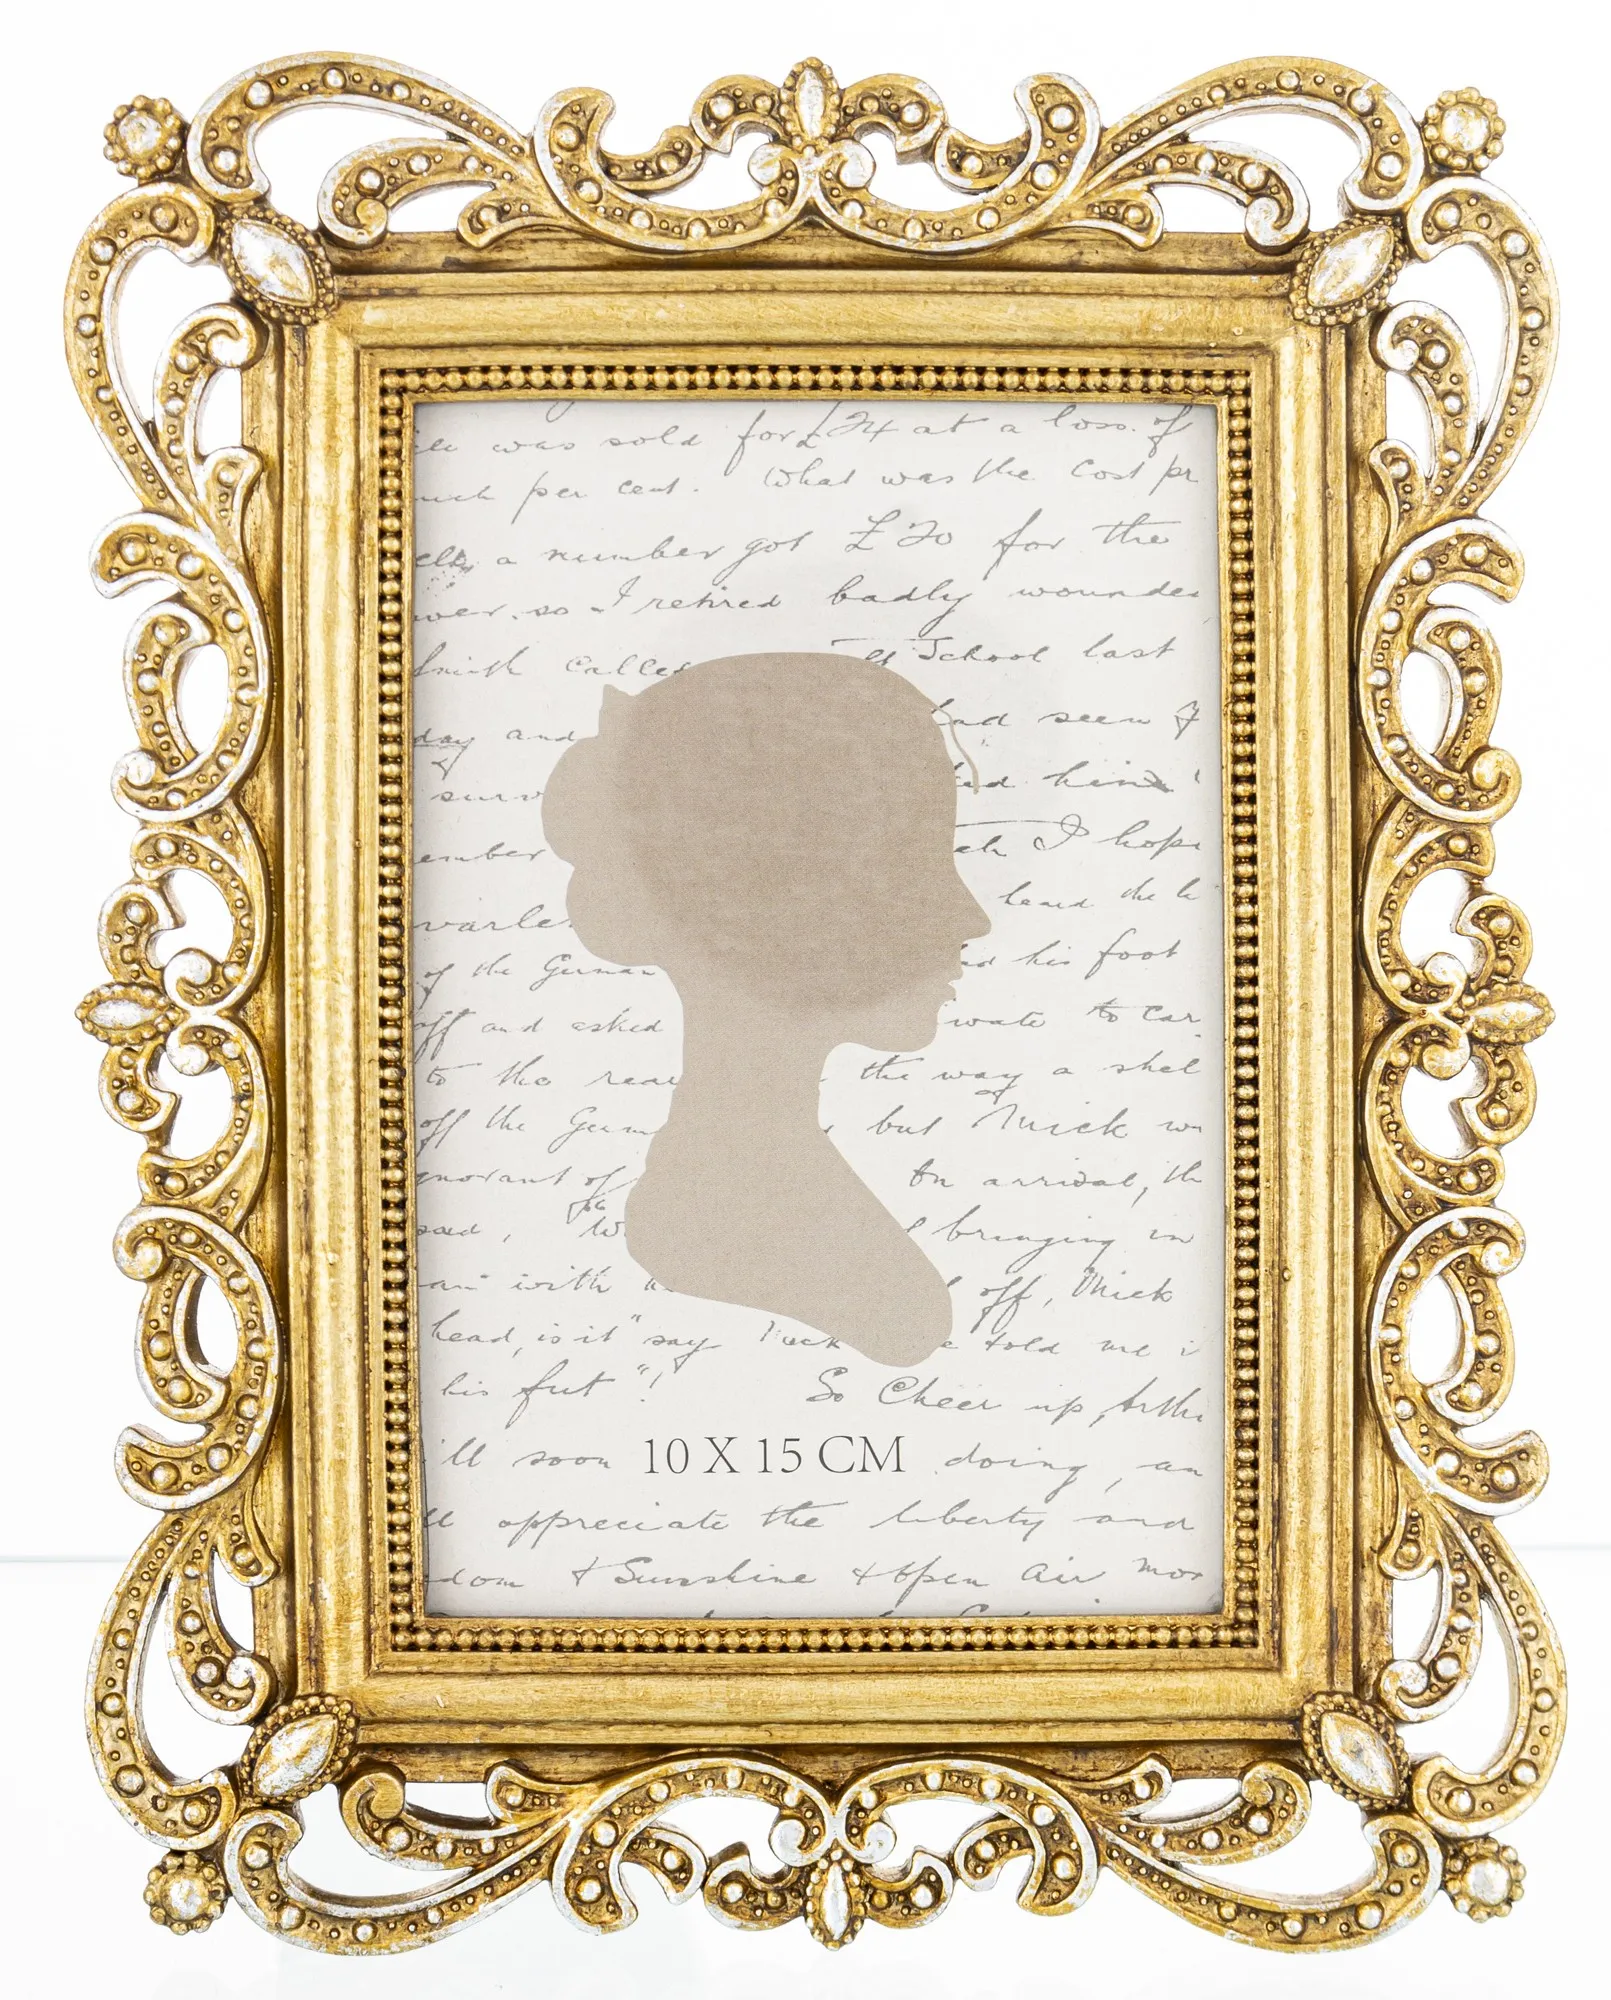 was sold for £24 at a loss of
per cent. What was the Cost pr
a number got £20 for the
so I retired badly wounde
Smith Called at School last
day and had seen
surv him
ember I hope
heard the
of the German his foot
off and asked to car
to the rear the way a shel
off the Germ but Mick
gnorant of On arrival, th
said, bringing in
with off, Mick
head, is it" say Mick told me
his feet"! So Cheer up, Arthu
'll soon 10 X 15 CM doing, an
ll appreciate the liberty and
dom & Sunshine & Open Air mor